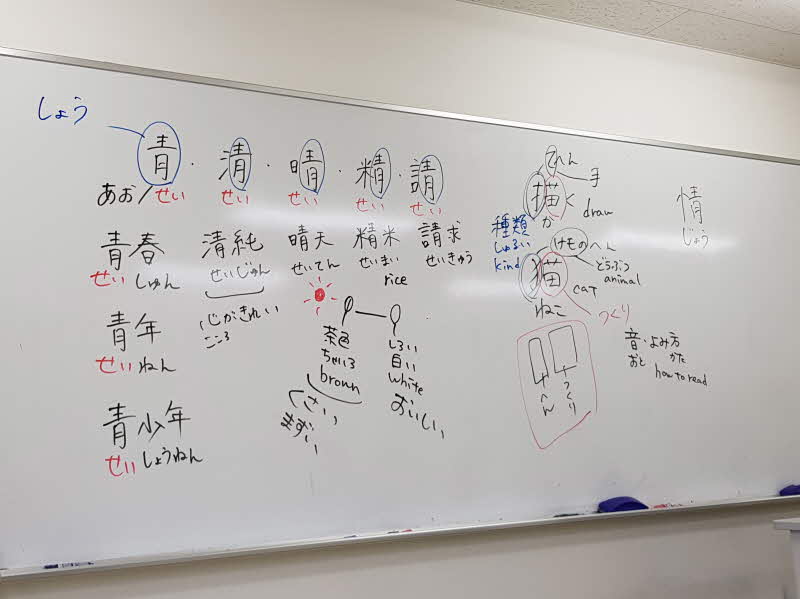 しょう
青・清・晴・精・請
あお/せい せい せい せい せい
青春 清純 晴天 精米 請求
せいしゅん せいじゅん せいてん せいまい せいきゅう
rice
心がきれい
こころ
青年
せいねん
青少年
せいしょうねん
茶色
ちゃいろ
brown
くさい
まずい
しろい
白い
white
おいしい
てへん
手
描く
か
draw
種類
しゅるい
kind
けものへん
どうぶつ
animal
猫
ねこ
cat
つくり
へん
つくり
情
じょう
音・よみ方
おと かた
how to read